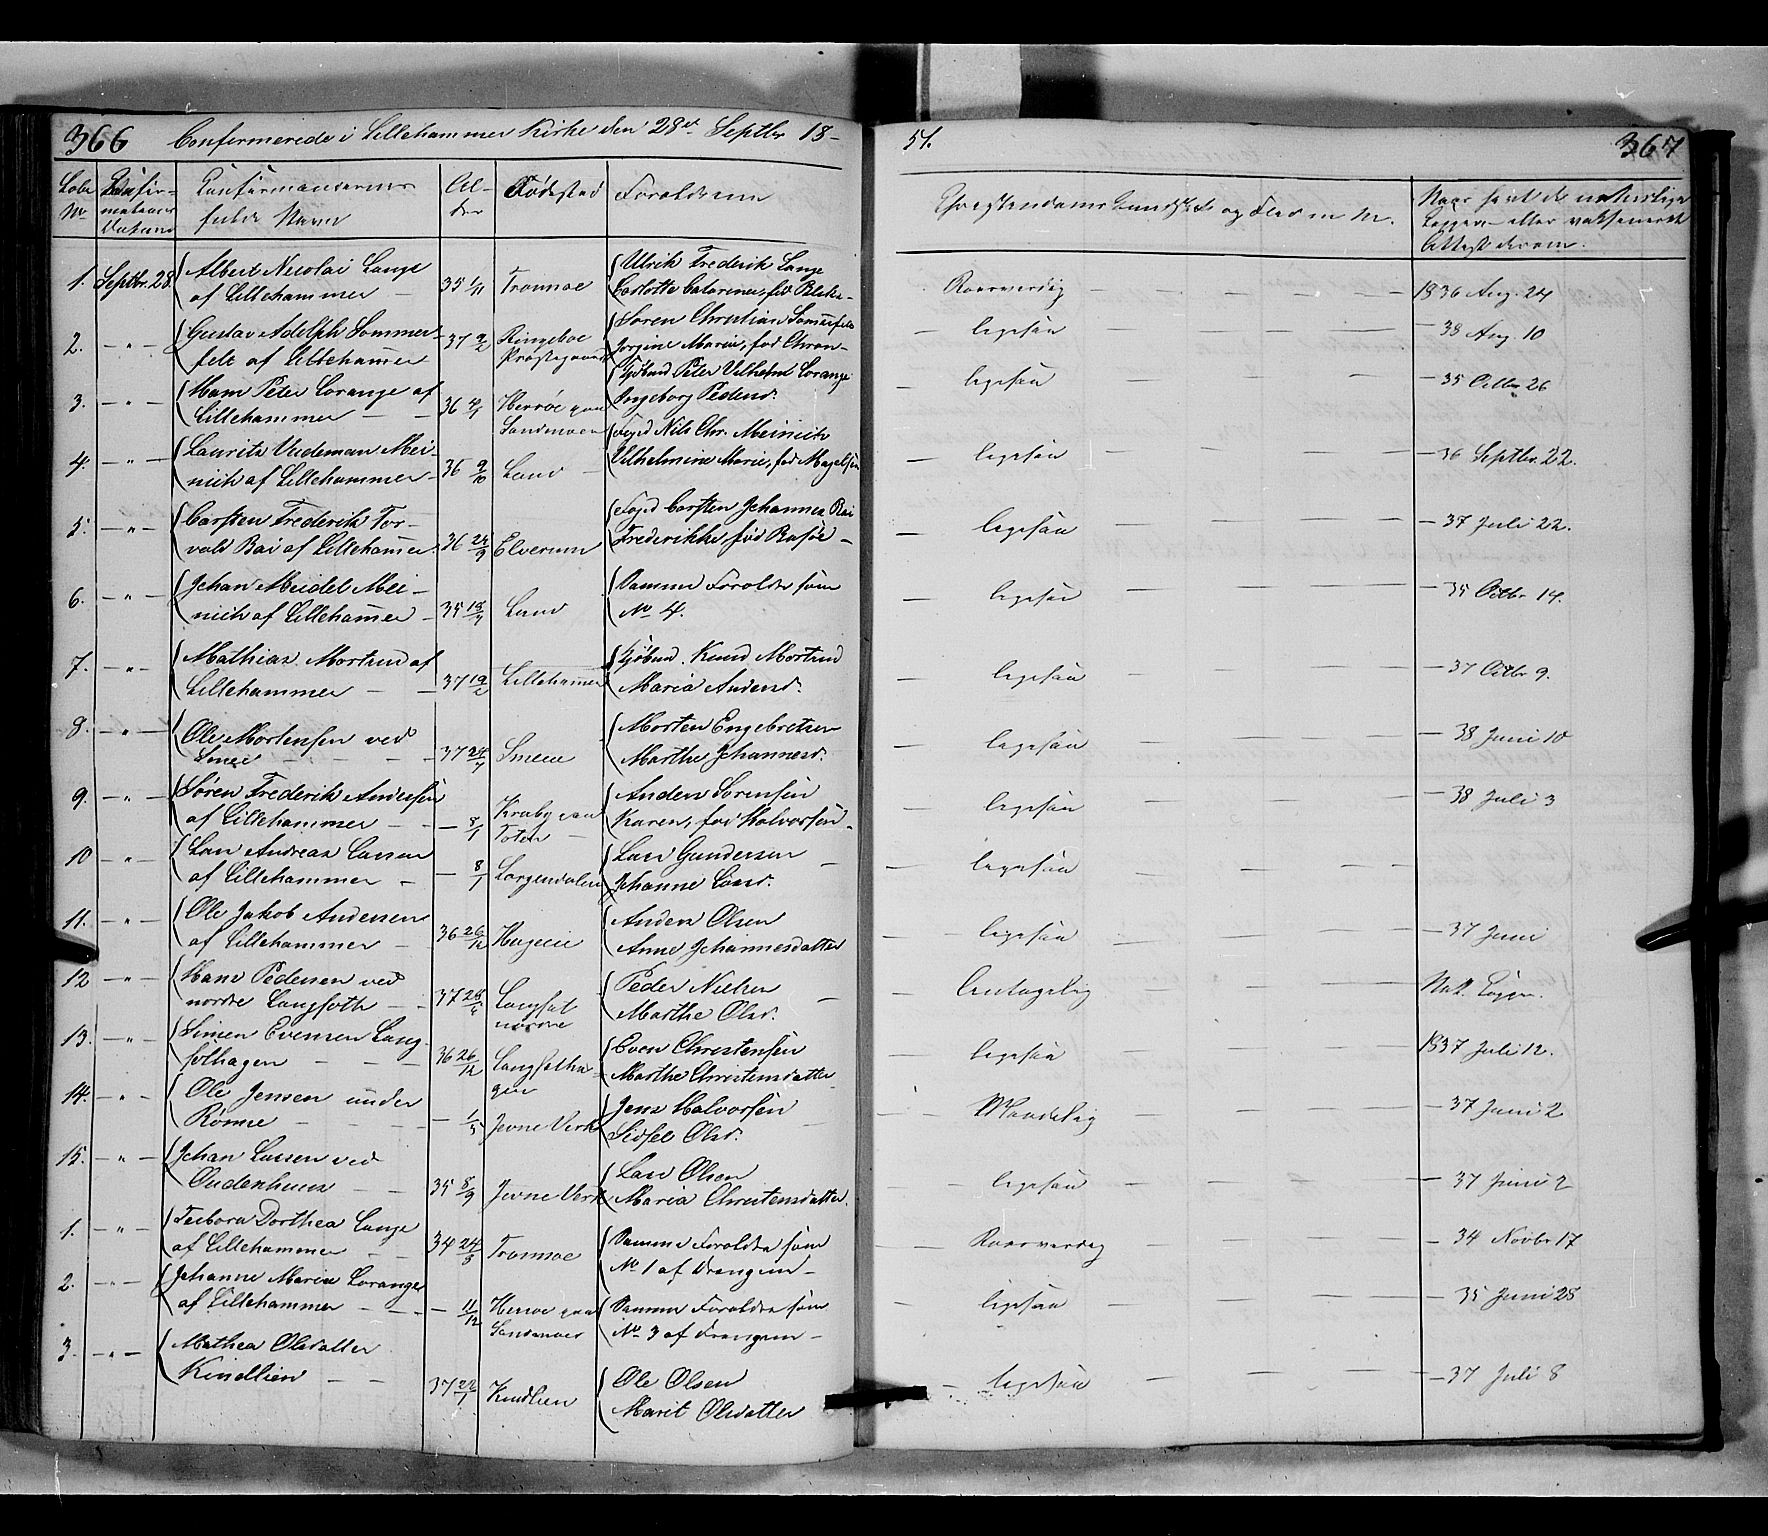 366 Confermerede i Lillehammer Kirke den 28de Septbr 18-
51. 367
Løbe No. Confirmationens Datum Confirmandernes fulde Navn Alder Fødested Forældrene
Christendoms Kundskab og Flid m. M. Naar havt de naturlige Kopper eller vaksineret Attest derom.
1. Septbr. 28. Albert Nicolai Lange
af Lillehammer — 35 1/11 Tromsøe
Ulrik Frederik Lange
Carlotte Catarina, fød
Roesværdig — — — — 1836 Aug. 24
2. — " — Gustav Adolph Sommer-
felt af Lillehammer 37 Ringeboe
Præstegaard
Søren Christian Sommerfelt
Jørgine Marie, fød
— ligesaa — — — — 38 Aug. 10
3. — " — Hans Peter Lorange af
Lillehammer — — 36 Herrøe paa
Søndmøer
Kjøbmd Peter Vilhelm Lorange
Ingeborg Pedersd.
— ligesaa — — — — 35 Octbr 26
4. — " — Laurits Meinich
af Lillehammer — 36 9/10 Land —
Foged Nils Chr. Meinich
Vilhelmine Marie, fød Magelsen
— ligesaa — — — — 36 Septbr. 22.
5. — " — Carsten Frederik Tor-
vald Bai af Lillehammer 36 24/9 Elverum
Foged Carsten Johannes Bai
Frederikke, fød —
— ligesaa — — — — 37 Juli 22.
6. — " — Johan Meidel Mei-
nich af Lillehammer — 35 Land
Samme Forældre som
No 4.
— ligesaa — — — — 35 Octbr 14.
7. — " — Mathias Mortend af
Lillehammer — — 37 Lillehammer
Kjøbmd. Knud Mortend
Maria Andersd.
— ligesaa — — — — 37 Octbr 9.
8. — " — Ole Mortensen ved
— — — 37 24/7
Morten Engebretsen
Marthe Johannesd.
— ligesaa — — — — 38 Juni 10
9. — " — Søren Frederik Andersen
af Lillehammer — — 8/1 Kraby paa
Toten —
Anders Sørensen
Karen, fød Halvorsen.
— ligesaa — — — — 38 Juli 3
10 — " — Lars Andreas Larsen
af Lillehammer — — 8/1 Lorgendalen
Lars Gundersen
Johanne Larsd.
— ligesaa — — — — —
11. — " — Ole Jakob Andersen
af Lillehammer — 36 26/12
Anders Olsen
Anne Johannesdatter
— ligesaa — — — — 37 Juni
12 — " — Hans Pedersen ved
nordre Langseth — 37 Langset
nordre
Peder Nielsen
Marthe Olsd.
— Antagelig — — — — Nat. Kopper.
13. — " — Simen Evensen Lang-
sethagen — — 36 26/12 Langsetha-
gen
Even Christensen
Marthe Christensdatter
— ligesaa — — — — 1837 Juli 12.
14. — " — Ole Jensen under
Rønne — — — — 1/5 Jevne Verk
Jens Halvorsen
Sidsel Olsd.
— Maadelig — — — — 37 Juni 2
15. — " — Johan Larsen ved
— — 35 8/9 Jevne Verk
Lars Olsen
Maria Christensdatter.
— ligesaa — — — — 37 Juni 2
1. — " — Dorthea Lange
af Lillehammer — — 34 Tromsøe
Samme Forældre som
No 1 af Drengene —
— Roesværdig — — — — 34 Novbr 17
2. — " — Johanne Marie Lorange
af Lillehammer — — — 11/12 Herrøe paa
Søndmøer
Samme Forældre som
No 3 af Drengene —
— ligesaa — — — — 35 Juni 28
3. — " — Mathea Olsdatter
Kindlien — — 37 22/1 Kindlien
Ole Olsen
Marit Olsdatter
— ligesaa — — — — 37 Juli 8